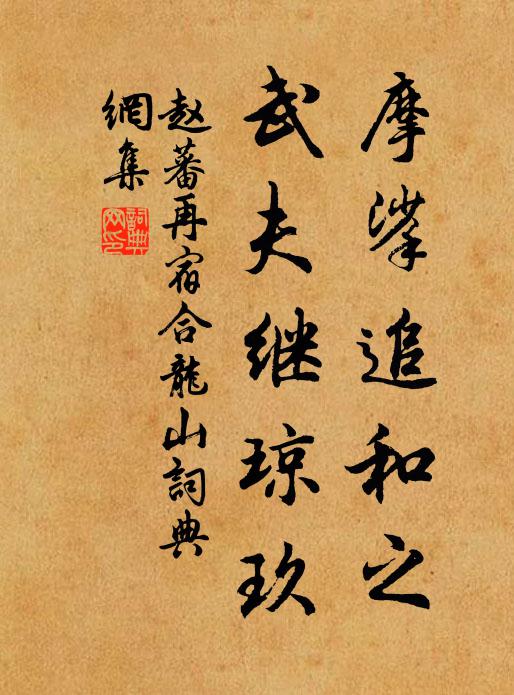 摩挲追和之
武夫继琼玖
赵蕃再宿合龍山詞典
網集
詞典網印